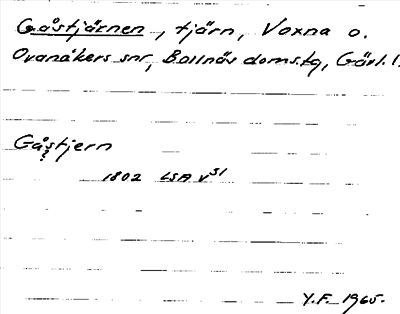 Gåstjärnen, tjärn, Voxna o.
Ovanåkers snr, Bollnäs doms.tg, Gävl. l.
Gåstjern
1802 LSA V 31
Y.F. 1965.